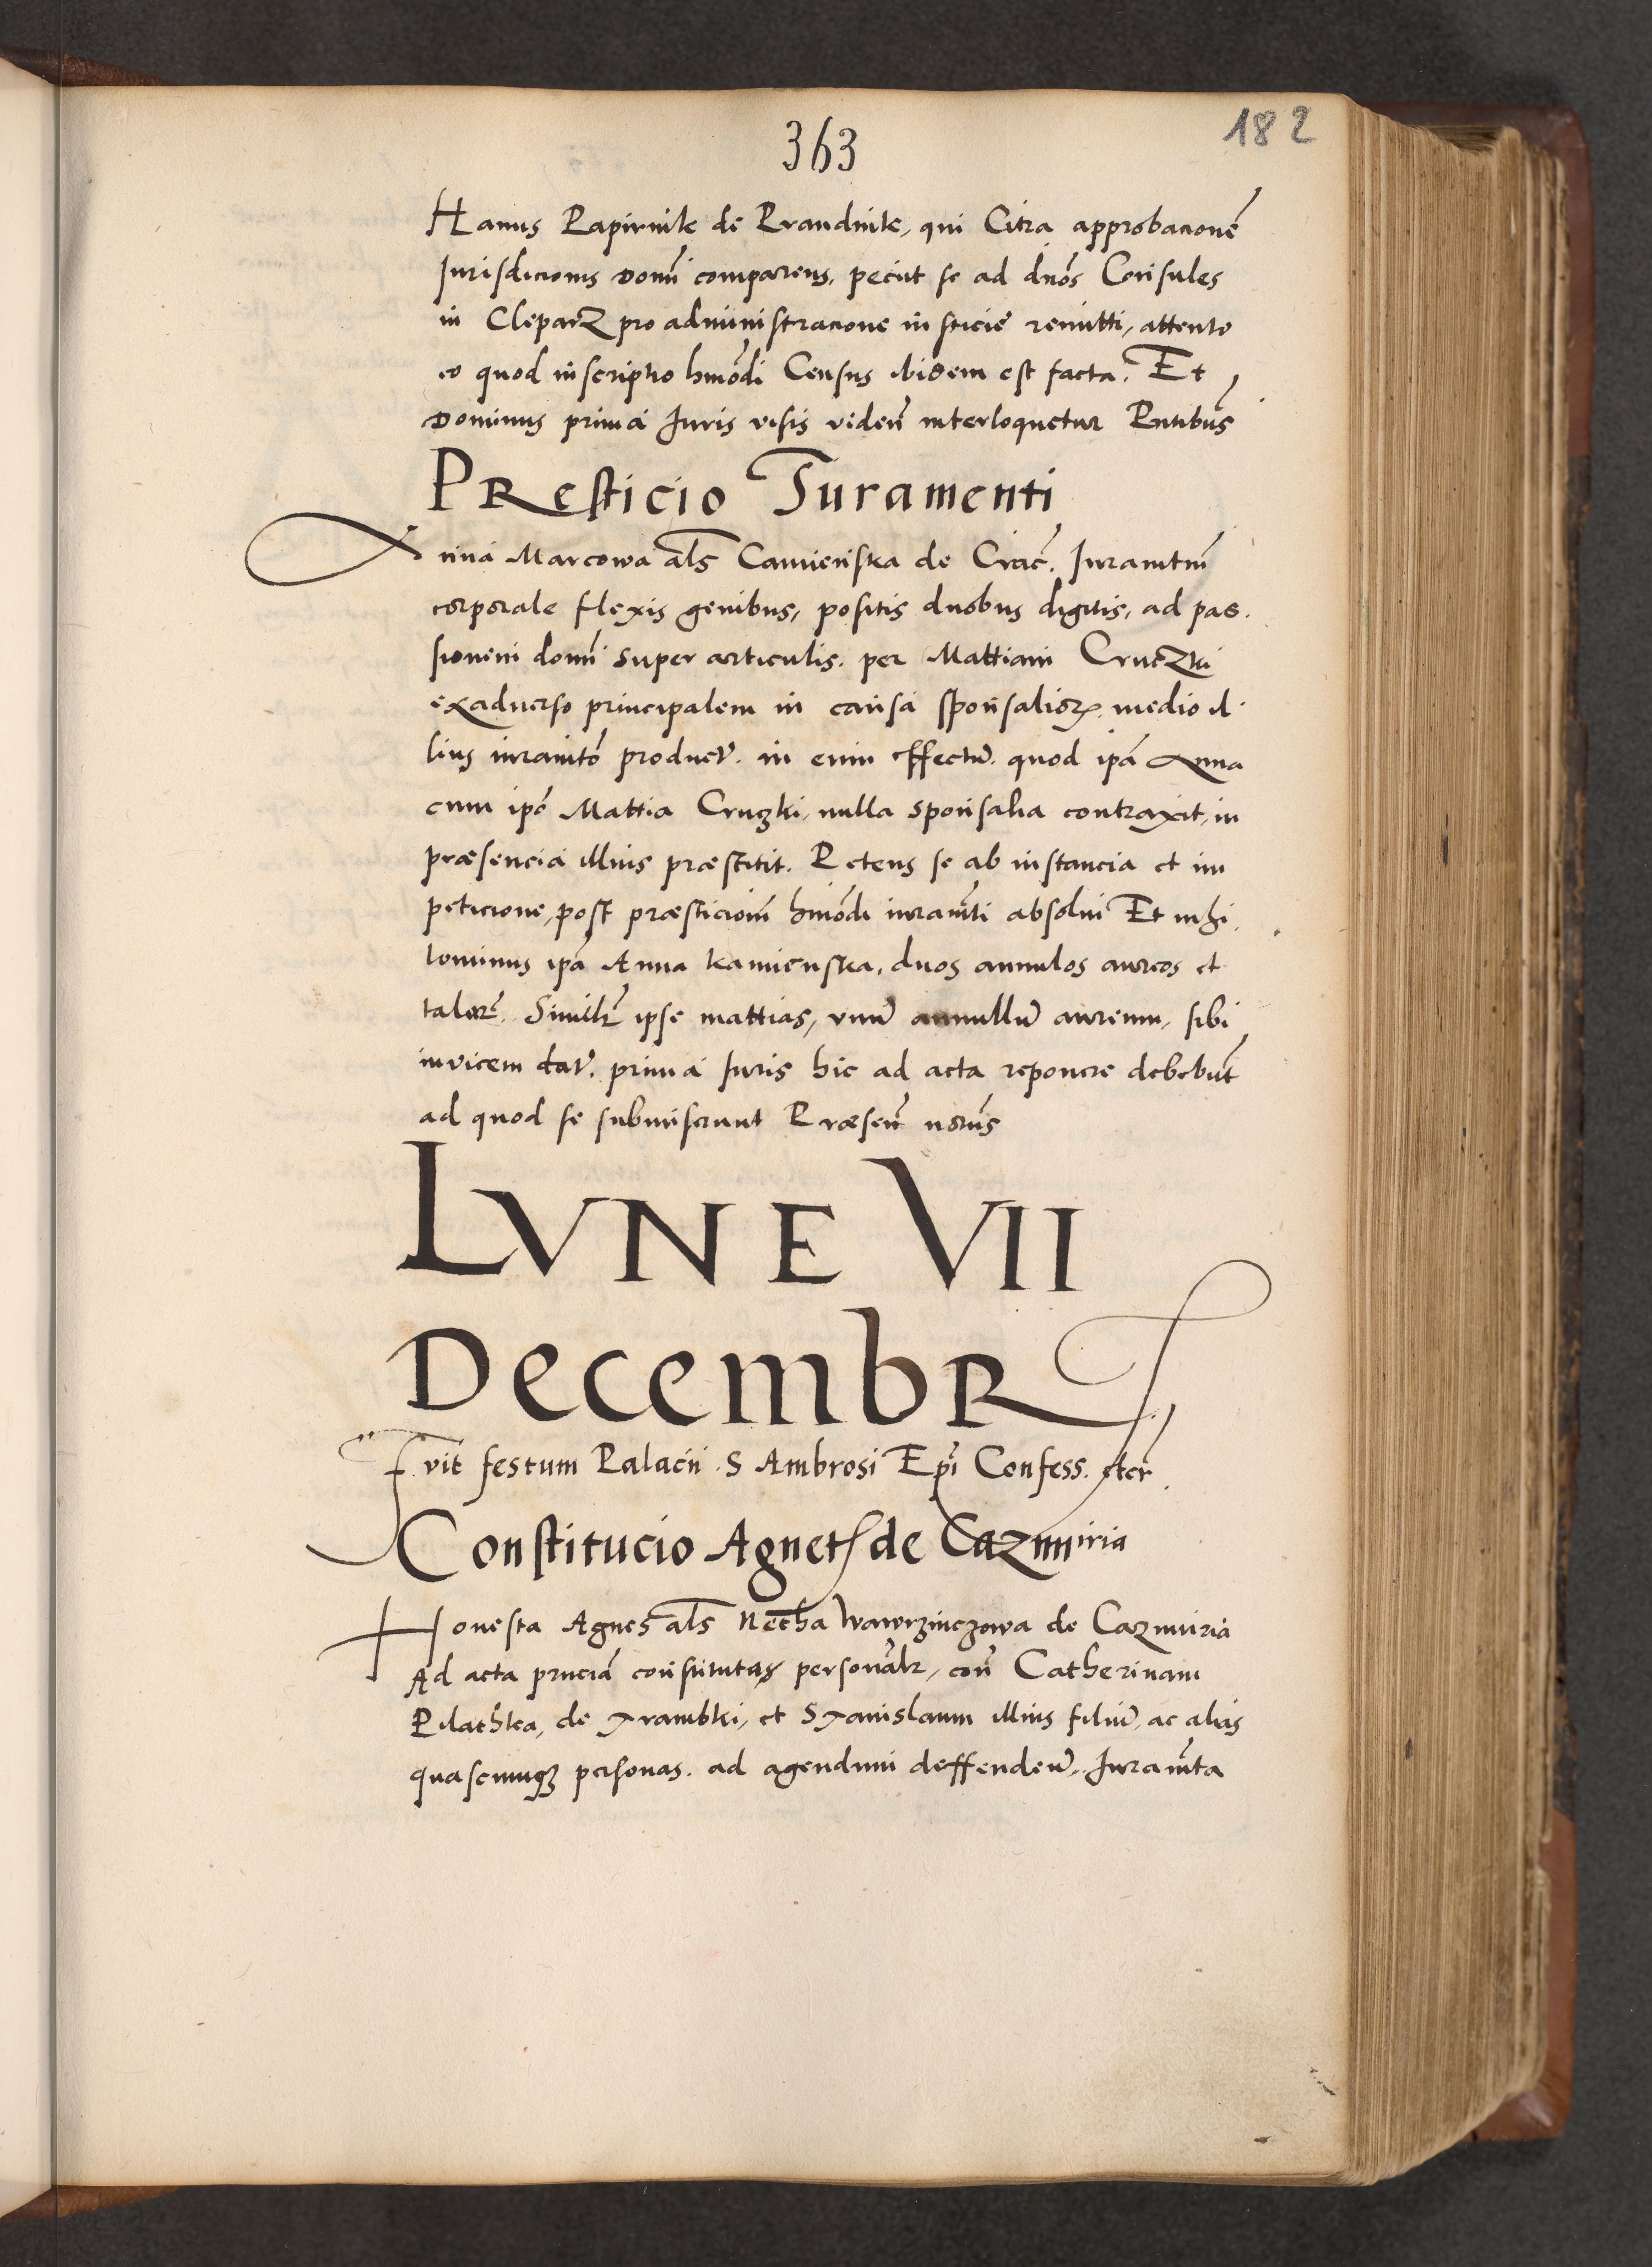 363
182
Hanus Papirnik de Prandnik, qui Citra approbacionē
Jurisdicionis Domī comparens, peciit se ad dnōs Consules
in CleparZ pro administracione iusticiē remitti, attento
eo quod inscriptio hmōdi Census ibidem est facta. Et
Dominus prima Juris visis videnī interloquetur Pntibus
PResticio Juramenti
Anna Marcowa als Camienska de Crac. Juramtm
corporale flexis genibus, positis duobus digitis, ad pas
sionem domī super articulis. per Mattiam Cruczki
exadverso principalem in causa sponsaliorꝝ medio il
lius iuramto product. in eum effectū. quod ipā Anna
cum ipō Mattia Cruzki, nulla sponsalia contraxit, in
præsencia illius præstitit. Petens se ab instancia et im
peticione, post præsticionī hmōdi iuramti absolui Et nihi
lominus ipā Anna kamienska, duos annulos aureos et
talerī. Similr ipse mattias, vnū annullū aureum, sibi
invicem dat. prima Juris hic ad acta reponere debebūt
ad quod se submiserunt Præsen notus
LVNE VII
DecembR
Fvit festum Palacii S Ambrosi Epi Confess. etcr
Constitucio Agnet de Cazmiria
Honesta Agnes als Netha Wawrzinczowa de Cazmiria
Ad acta pnciā constituta personalr, con Catherinam
Pilathka, de Trambki, et Stanislaum illius filiū, ac alias
quascunqꝫ personas. ad agendum deffendenū. Juramta